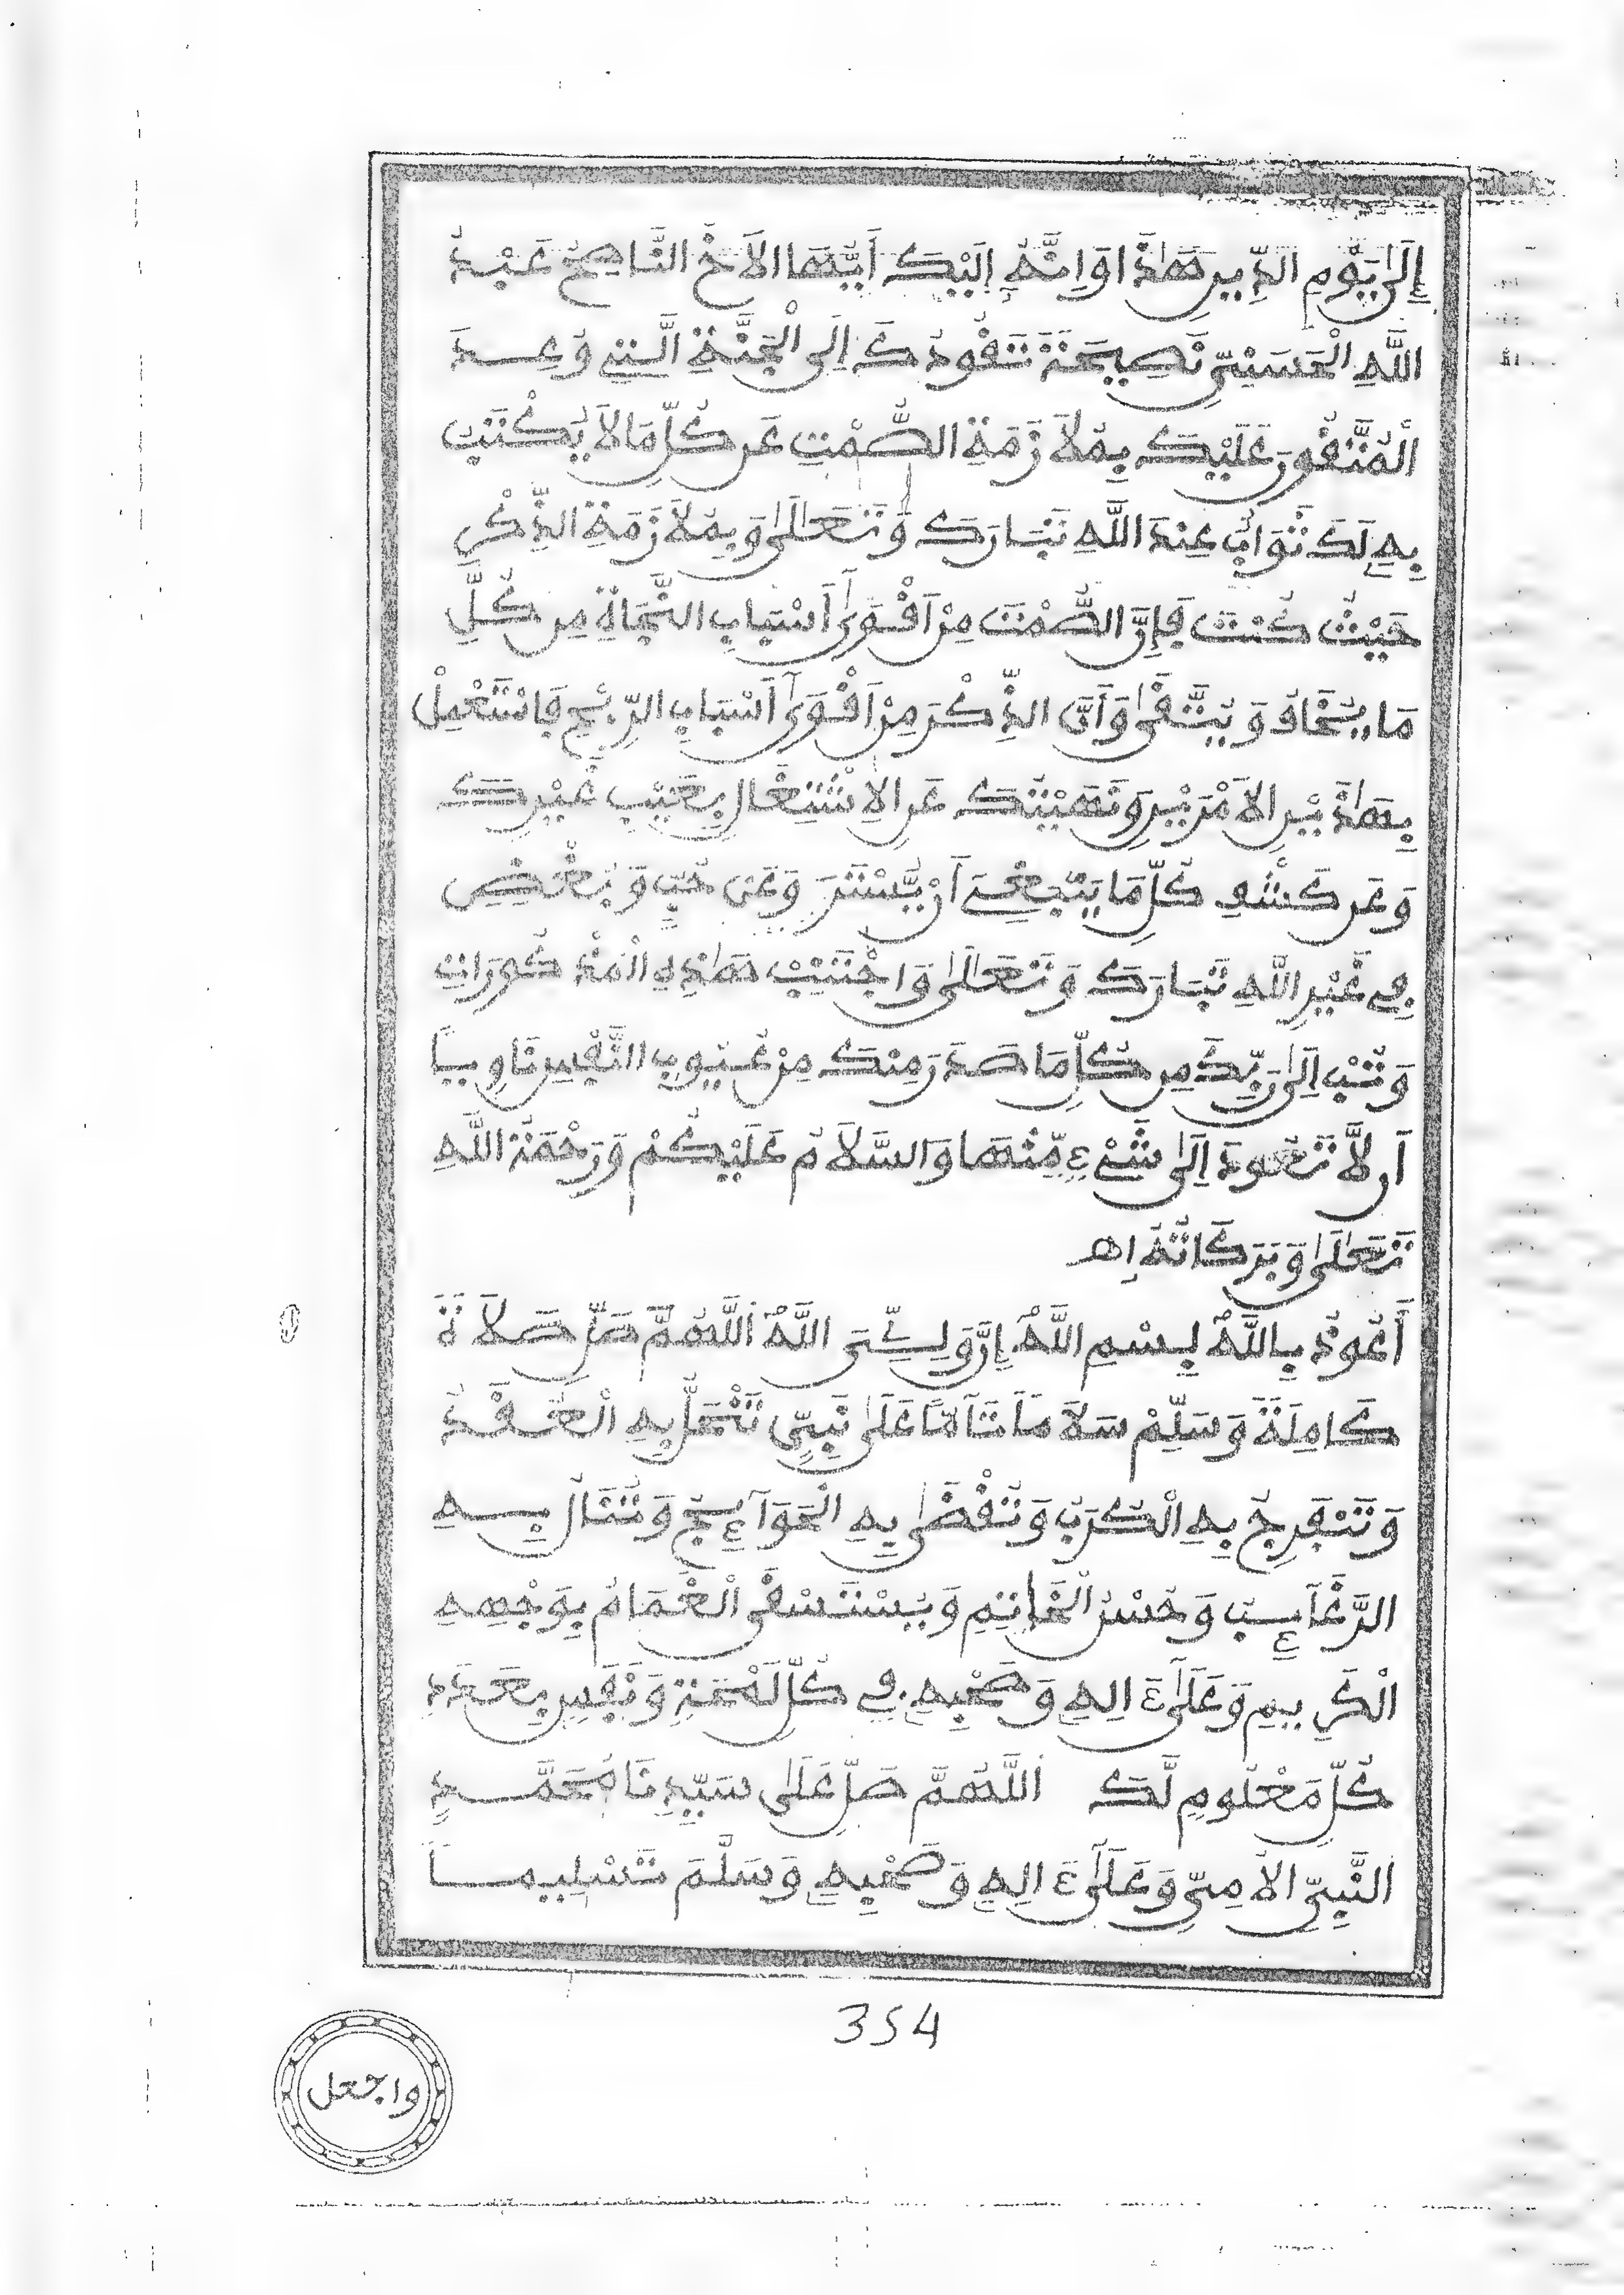 إِلَىٰ يَوْمِ الدِّينِ هَٰذَا وَإِنَّهُ إِلَيْكَ أَيُّهَا الْأَخُ النَّاصِحُ عَبْدُ
اللَّهِ الْحَسَنِيِّ نَصِيحَةً تَقُودُكَ إِلَى الْجَنَّةِ الَّتِي وُعِدَ
الْمُتَّقُونَ عَلَيْكَ بِمُلَازَمَةِ الصَّمْتِ عَن كُلِّ مَا لَا يُكْتَبُ
بِهِ لَكَ ثَوَابٌ عِندَ اللَّهِ تَبَارَكَ وَتَعَالَىٰ وَبِمُلَازَمَةِ الذِّكْرِ
حَيْثُ كُنْتَ فَإِنَّ الصَّمْتَ مِنْ أَقْوَىٰ أَسْبَابِ النَّجَاةِ مِن كُلِّ
مَا يُخَافُ وَيُتَّقَىٰ وَأَنَّ الذِّكْرَ مِنْ أَقْوَىٰ أَسْبَابِ الرِّبْحِ فَاشْتَغِلْ
بِهَٰذَيْنِ الْأَمْرَيْنِ وَنَهَيْتُكَ عَنِ الِاشْتِغَالِ بِعَيْبِ غَيْرِكَ
وَعَن كَشْفِ كُلِّ مَا يَنْبَغِي أَنْ يُّسْتَرَ وَعَنْ حُبٍّ وَبُغْضٍ
فِي غَيْرِ اللَّهِ تَبَارَكَ وَتَعَالَىٰ وَاجْتَنِبْ هَٰذِهِ الْمَذْكُورَاتِ
وَتُبْ إِلَىٰ رَبِّكَ مِن كُلِّ مَا صَدَرَ مِنكَ مِنْ عُيُوبِ النَّفْسِ نَاوِيًا
أَن لَّا تَعُودَ إِلَىٰ شَيْءٍ مِّنْهَا وَالسَّلَامُ عَلَيْكُمْ وَرَحْمَةُ اللَّهِ
تَعَالَىٰ وَبَرَكَاتُهُ اهـ
أَعُوذُ بِاللَّهِ بِسْمِ اللَّهِ إِنَّ وَلِيِّيَ اللَّهُ اللَّهُمَّ صَلِّ صَلَاةً
كَامِلَةً وَسَلِّمْ سَلَامًا تَآمًّا عَلَىٰ نَبِيٍّ تَنْحَلُّ بِهِ الْعُقَدُ
وَتَنْفَرِجُ بِهِ الْكُرَبُ وَتُقْضَىٰ بِهِ الْحَوَآئِجُ وَتُنَالُ بِهِ
الرَّغَآئِبُ وَحُسْنُ الْخَوَاتِمِ وَيُسْتَسْقَى الْغَمَامُ بِوَجْهِهِ
الْكَرِيمِ وَعَلَىٰٓ ءَالِهِ وَصَحْبِهِ فِي كُلِّ لَمْحَةٍ وَنَفَسٍ بِعَدَدِ
كُلِّ مَعْلُومٍ لَّكَ اللَّهُمَّ صَلِّ عَلَىٰ سَيِّدِنَا مُحَمَّدٍ
النَّبِيِّ الْأُمِّيِّ وَعَلَىٰٓ ءَالِهِ وَصَحْبِهِ وَسَلَّمَ تَسْلِيمًا
354
واجعل